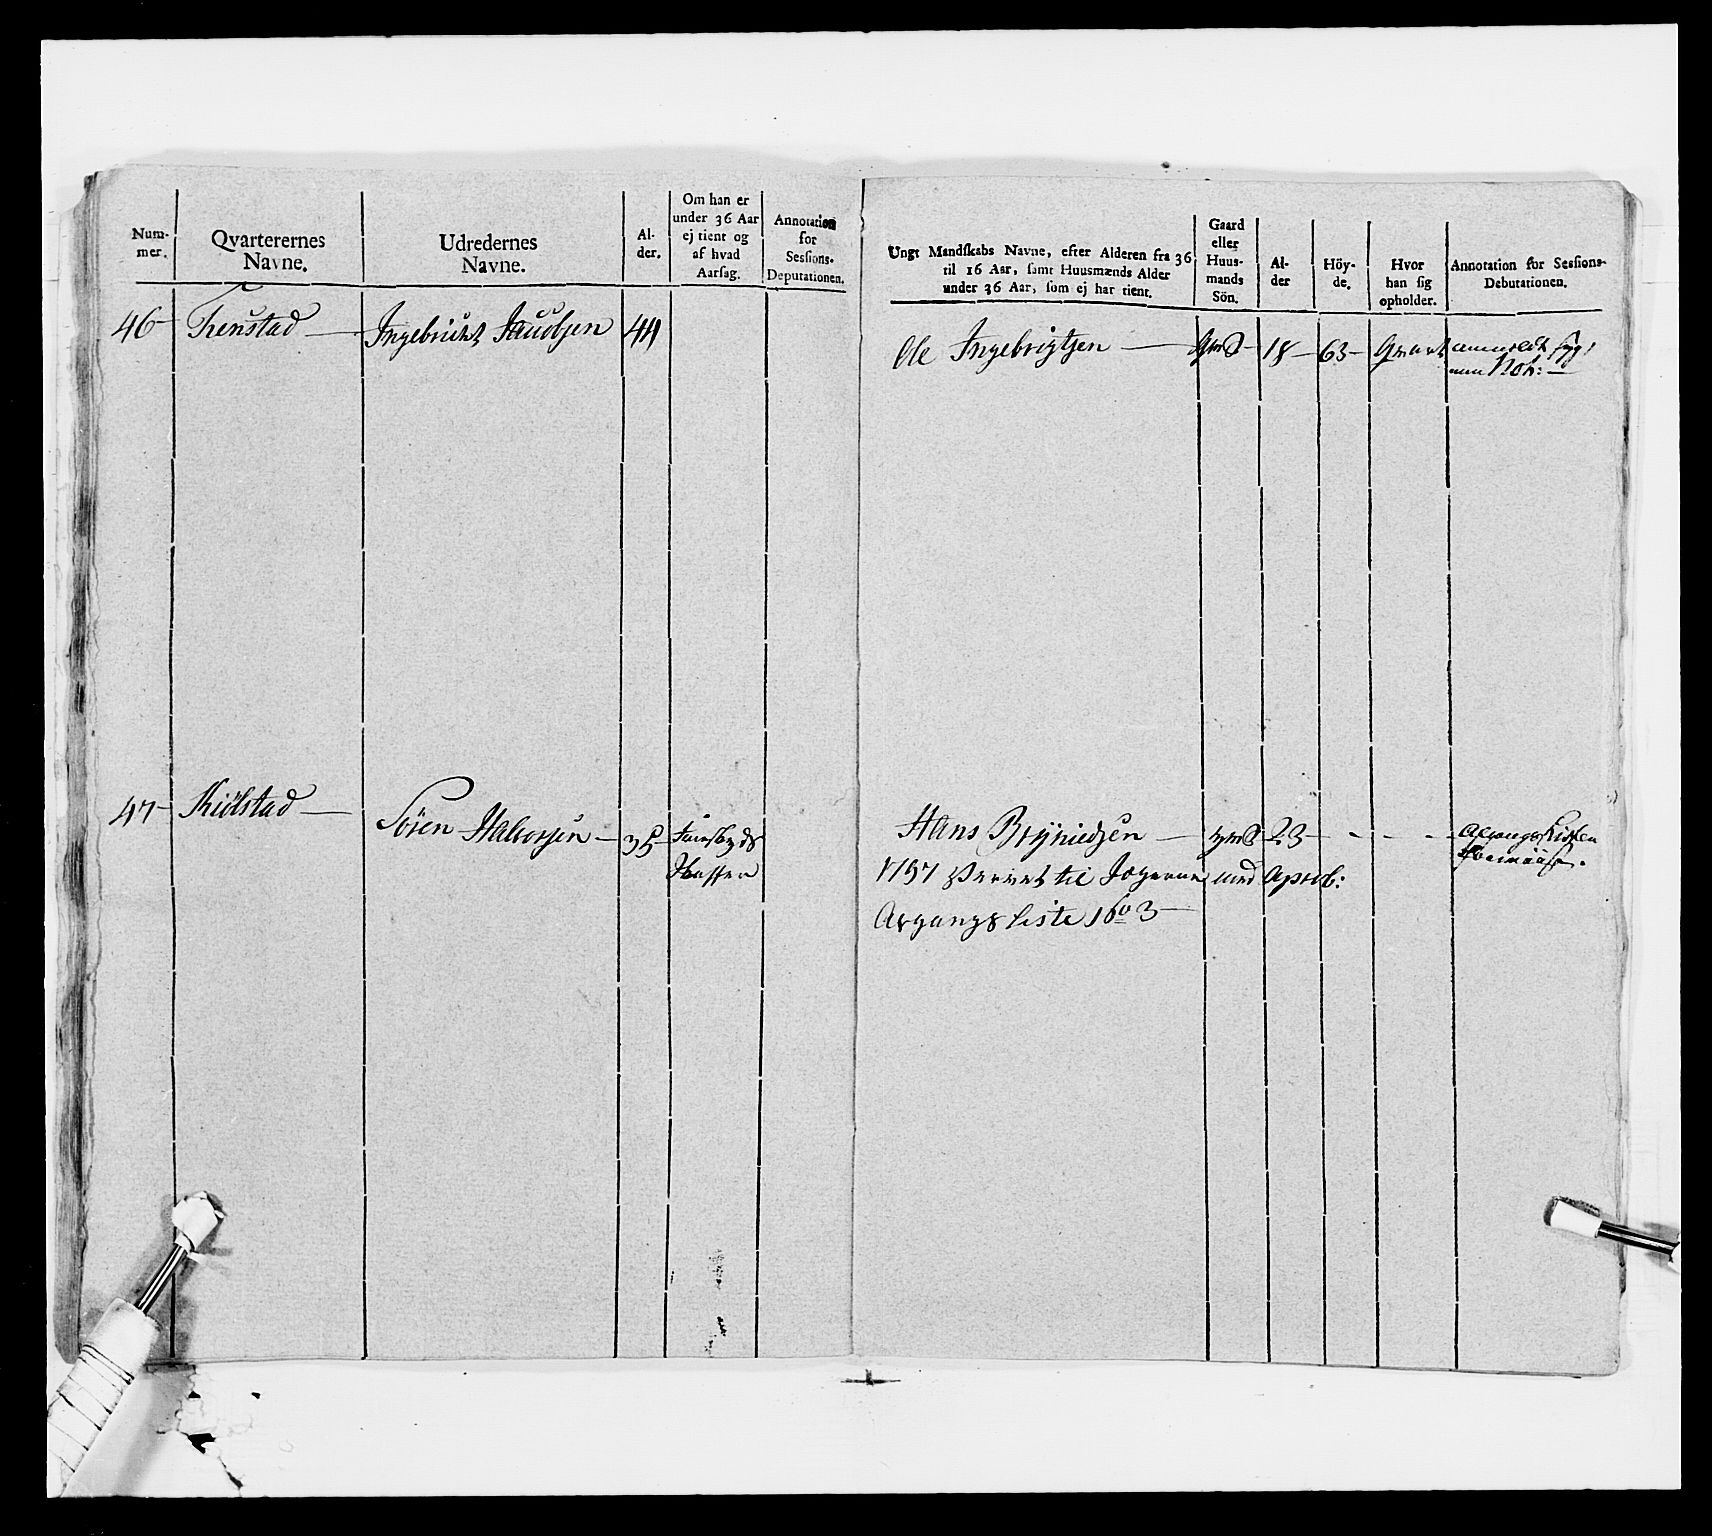 Num-
mer.
Qvarterernes
Navne.
Udredernes
Navne.
Al-
der.
Om han er
under 36 Aar
ej tient og
af hvad
Aarsag.
Annotation
for
Sessions-
Deputationen.
46 Trenstad Ingebricht Jacobsen 44
47 Kiölstad Sören Halvorsen 35
Ungt Mandskabs Navne, efter Alderen fra 36
til 16 Aar, samt Huusmænds Alder
under 36 Aar, som ej har tient.
Gaard
eller
Huus-
mands
Sön.
Al-
der
Höy-
de.
Hvor
han sig
opholder.
Annotation for Sessions-
Debutationen.
Ole Ingebrigtsen 18 63 Qvart
Not:
Hans Brÿnieldsen 23
1797 til Jægerne med Aprob:
Afgangs Liste 1603